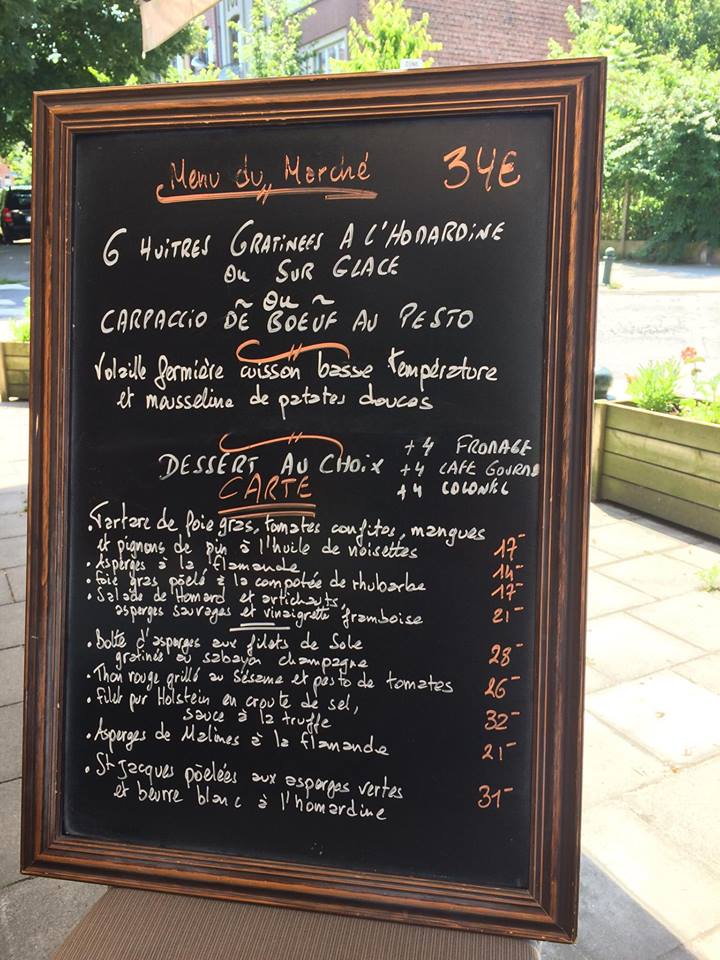 Menu du Marché 34€
6 HUITRES GRATINEES A L'HOMARDINE
OU SUR GLACE
~ OU ~
CARPACCIO DE BOEUF AU PESTO
Volaille fermière cuisson basse température
et mousseline de patates douces
DESSERT AU CHOIX
+4 FROMAGE
+4 CAFE GOURMD
+4 COLONEL
CARTE
.Tartare de foie gras, tomates confites, mangues
et pignons de pin à l'huile de noisettes 17-
.Asperges à la flamande 14-
.Foie gras poêlé à la compotée de rhubarbe 17-
.Salade de Homard et artichauts,
asperges sauvages et vinaigrette framboise 21-
.Botte d'asperges aux filets de Sole
gratinée au sabayon champagne 28-
.Thon rouge grillé au Sésame et pesto de tomates 26-
.Filet pur Holstein en croute de sel,
sauce à la truffe 32-
.Asperges de Malines à la flamande 21-
.St Jacques poêlées aux asperges vertes
et beurre blanc à l'homardine 31-